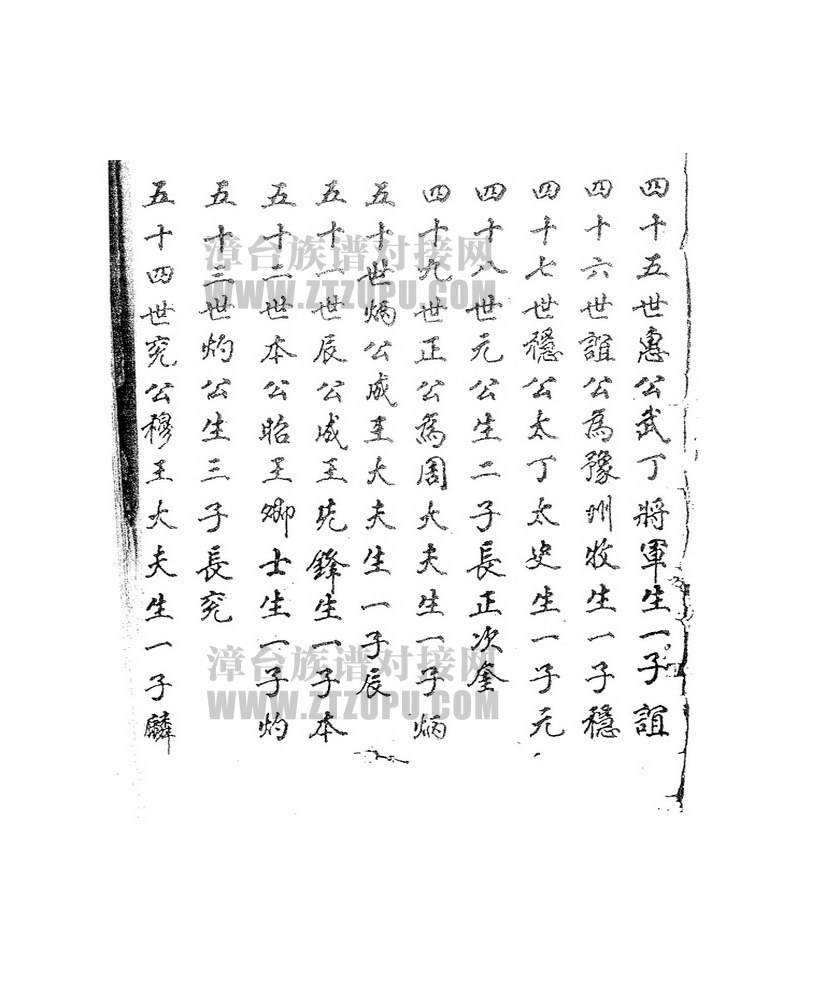 四十五世惠公武丁將軍生一子誼
四十六世誼公為豫州牧生一子穩
四十七世穩公太丁太史生一子元
四十八世元公生二子長正次奎
四十九世正公為周大夫生一子炳
五十世炳公成王大夫生一子辰
五十一世辰公成王先鋒生一子本
五十二世本公昭王卿士生一子灼
五十三世灼公生三子長兖
五十四世兖公穆王大夫生一子麟
漳台族谱对接网
WWW.ZTZUPU.COM
漳台族谱对接网
WWW.ZTZUPU.COM